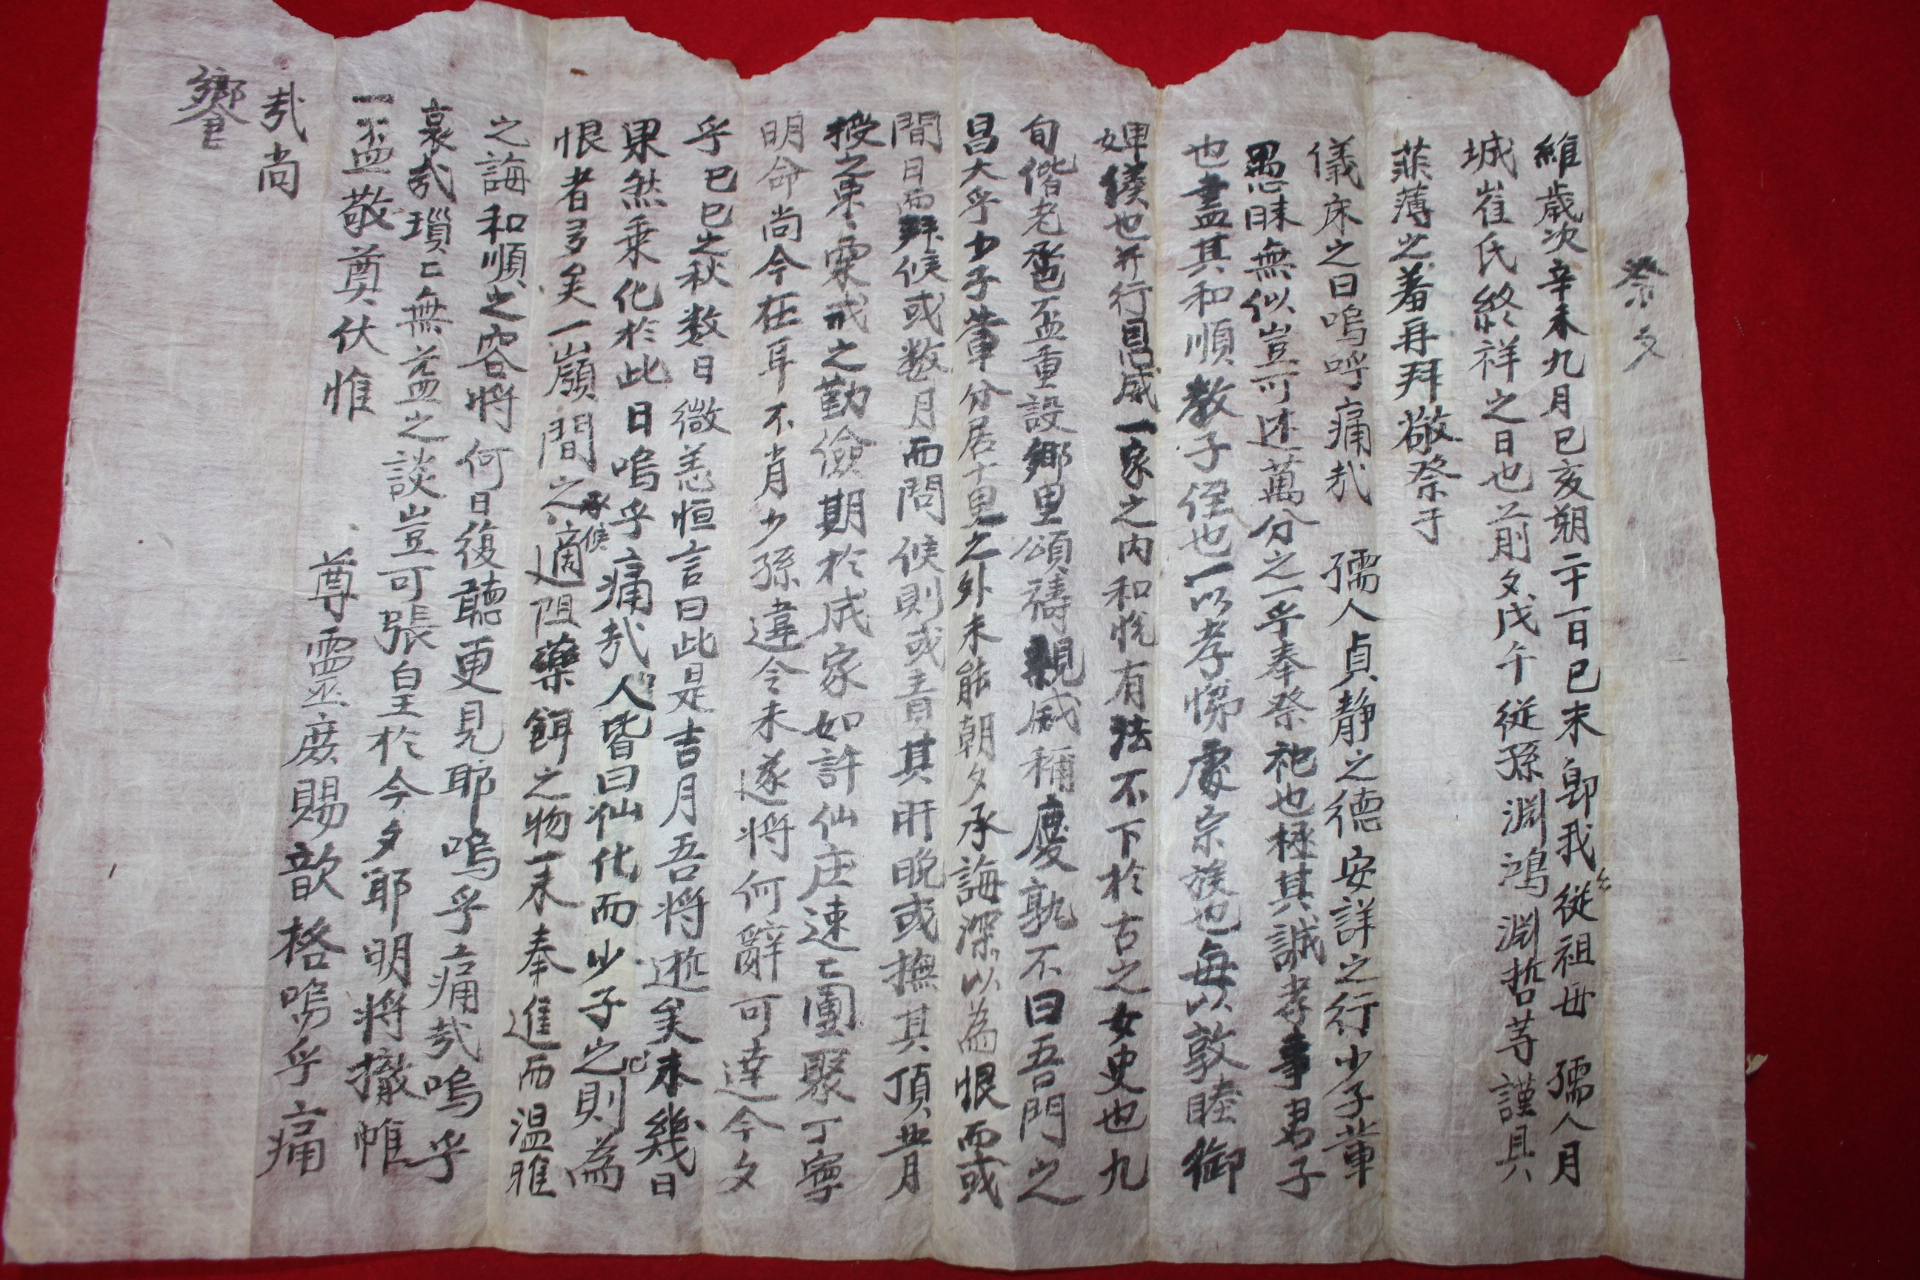 祭文
維歲次辛未九月己亥朔二十一日己未即我從祖母 孺人月
城崔氏終祥之日也前夕戊午從孫淵鴻淵哲等謹具
菲薄之羞再拜敬祭于
儀床之日嗚呼痛哉 孺人貞静之德安詳之行少子輩
愚昧無似豈可述萬分之一乎奉祭祀也極其誠孝事君子
也盡其和順教子侄也一以孝悌處宗族也每以敦睦御
婢僕也并行恩威一家之内和悅有法不下於古之女史也九
旬偕老巹盃重設鄉里頌禱親戚稱慶孰不曰吾門之
昌大乎少子輩分居十里之外未能朝夕承誨深以為恨而或
間日而拜候或数月而問候則或責其旰晚或撫其頂背
授之栗戒之勤儉期於成家如許仙庄速亡團聚丁寧
明命尚今在耳不肖少孫違令未遂将何辭可達今夕
乎己巳之秋数日微恙恒言曰此是吉月吾将逝矣未幾日
果然乗化於此日嗚乎痛哉人皆曰仙化而少子之則為
恨者多矣一嶺間之適阻承候藥餌之物一未奉進而温雅
之誨和順之容将何日復聽更見耶嗚乎痛哉嗚乎
哀哉瑣亡無益之談豈可張皇於今夕耶明将撤帷
一盃敬奠伏惟 尊靈庶賜歆格嗚乎痛
哉尚
饗